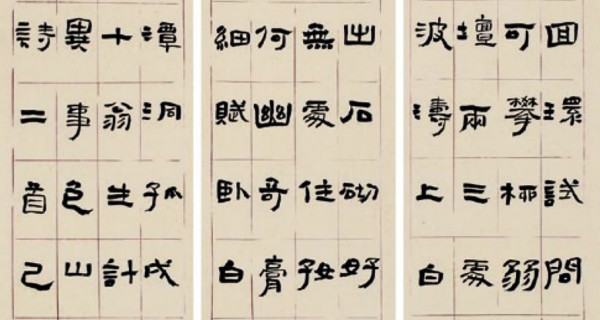 回環試問
可攀極弱
壇兩三處
波濤上白
出石砌好
無處住
何幽奇膏
細賦卧白
潭洞孤成
十翁生計
異事色山
詩二首己